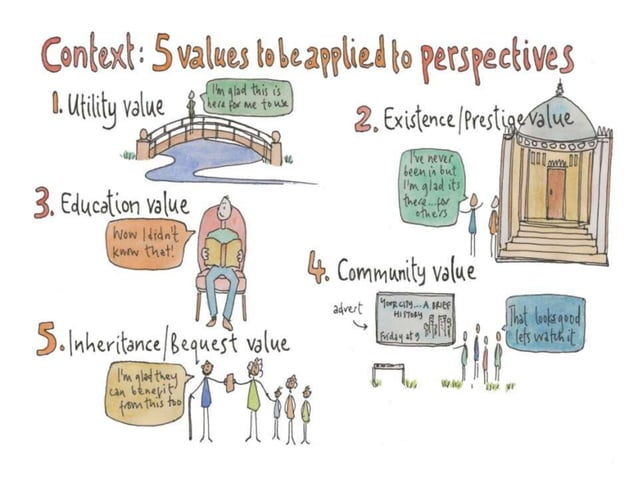 Context: 5 values to be applied to perspectives
1. Utility value
I'm glad this is
here for me to use
2. Existence/Prestige value
I've never
been in but
I'm glad its
there...for
others
3. Education value
Wow I didn't
know that!
4. Community value
advert
Your city... A BRIEF
HISTORY
Friday at 9
That looks good
lets watch it
5. Inheritance/Bequest value
I'm glad they
can benefit
from this too